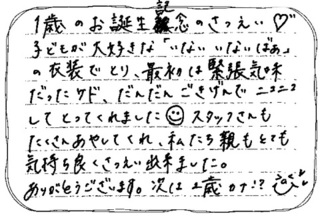 1歳のお誕生記念のさつえい♡
子どもが大好きな「いないいないばぁ」
の衣装でとり、最初は緊張気味
だったケド、だんだんごきげんでニコニコ
してとってくれました☺スタッフさんも
たくさんあやしてくれ、私たち親もとても
気持ち良くさつえい出来ました。
ありがとうございます。次は2歳カナ!?